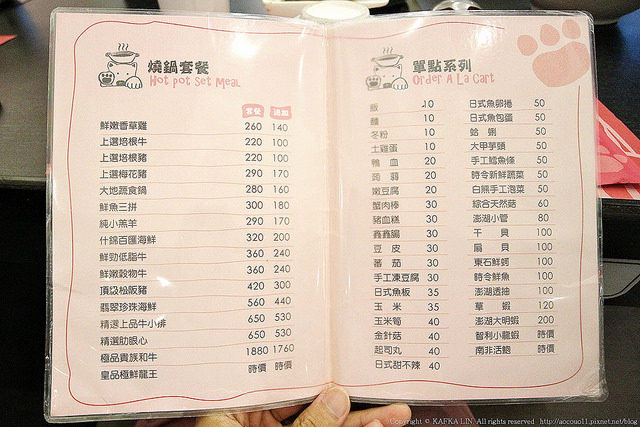 燒鍋套餐
Hot pot Set Meal
套餐 追加
鮮嫩香草雞 260 140
上選培根牛 220 100
上選培根豬 220 100
上選梅花豬 290 170
大地蔬食鍋 280 160
鮮魚三拼 300 180
純小羔羊 290 170
什錦百匯海鮮 320 200
鮮勁低脂牛 360 240
鮮嫩穀物牛 360 240
頂級松阪豬 420 300
翡翠珍珠海鮮 560 440
精選上品牛小排 650 530
精選肋眼心 650 530
極品貴族和牛 1880 1760
皇品極鮮龍王 時價 時價
單點系列
Order A La Cart
飯 10
麵 10
冬粉 10
土雞蛋 10
鴨血 20
蒟蒻 20
嫩豆腐 20
蟹肉棒 30
豬血糕 30
鑫鑫腸 30
豆皮 30
蕃茄 30
手工凍豆腐 30
日式魚板 35
玉米 35
玉米筍 40
金針菇 40
起司丸 40
日式甜不辣 40
日式魚卵捲 50
日式魚包蛋 50
蛤蜊 50
大甲芋頭 50
手工鱈魚條 50
時令新鮮蔬菜 50
白熊手工泡菜 50
綜合天然菇 60
澎湖小管 80
干貝 100
扇貝 100
東石鮮蚵 100
時令鮮魚 100
澎湖透抽 100
草蝦 120
澎湖大明蝦 200
智利小龍蝦 時價
南非活鮑 時價
Copyright © KAFKA LIN. All rights reserved http://aocouo11.pixnet.net/blog